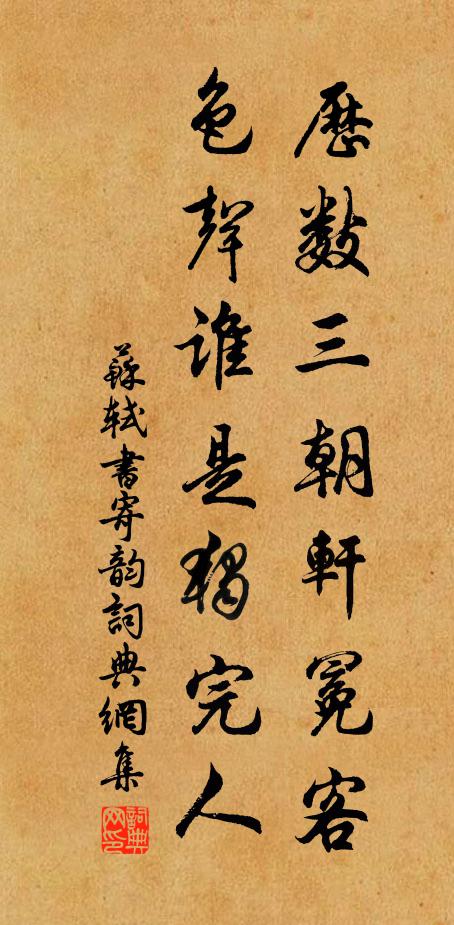 歷數三朝軒冕客
色聲誰是獨完人
蘇軾書寄韵詞典網集
詞典網印